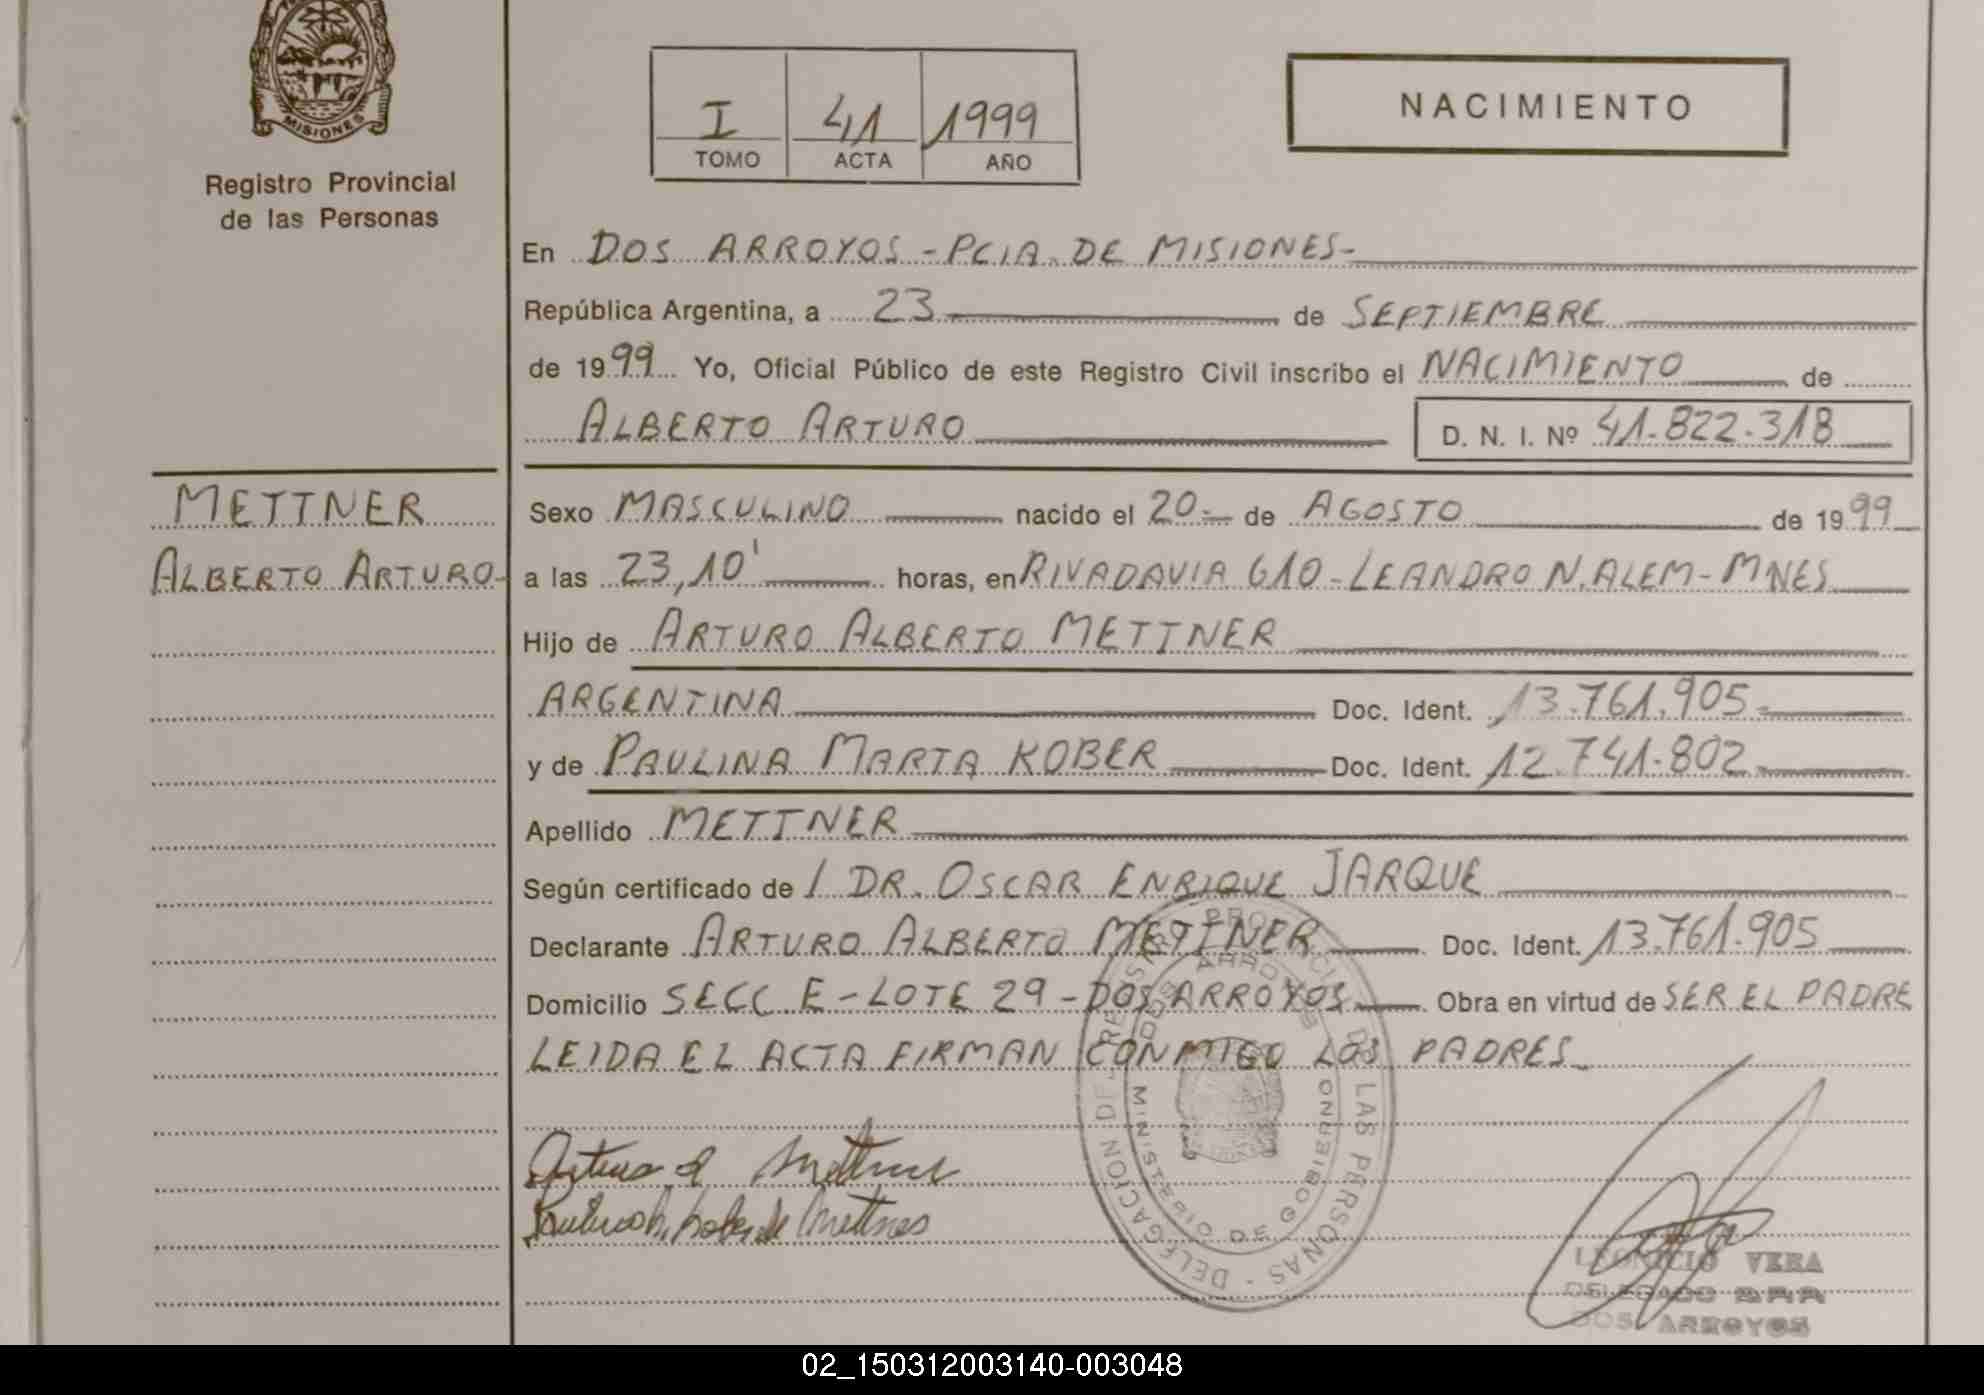 MISIONES
Registro Provincial
de las Personas
I 41 1999
TOMO ACTA AÑO
NACIMIENTO
En DOS ARROYOS - PCIA. DE MISIONES-
República Argentina, a 23 de SEPTIEMBRE
de 1999 Yo, Oficial Público de este Registro Civil inscribo el NACIMIENTO de
ALBERTO ARTURO D. N. I. Nº 41.822.318
METTNER
ALBERTO ARTURO-
Sexo MASCULINO nacido el 20- de AGOSTO de 1999
a las 23,10' horas, en RIVADAVIA 610 - LEANDRO N. ALEM - MNES
Hijo de ARTURO ALBERTO METTNER
ARGENTINA Doc. Ident. 13.761.905-
y de PAULINA MARTA KOBER Doc. Ident. 12.741.802-
Apellido METTNER
Según certificado de / DR. OSCAR ENRIQUE JARQUE
Declarante ARTURO ALBERTO METTNER Doc. Ident. 13.761.905
Domicilio SECC. E - LOTE 29 - DOS ARROYOS Obra en virtud de SER EL PADRE
LEIDA EL ACTA FIRMAN CONMIGO LOS PADRES
Arturo A Mettner
DELEGACION DE REGISTRO PROVINCIAL DE LAS PERSONAS
DOS ARROYOS
MINISTERIO DE GOBIERNO
LEONICIO VERA
DOS ARROYOS
02_150312003140-003048